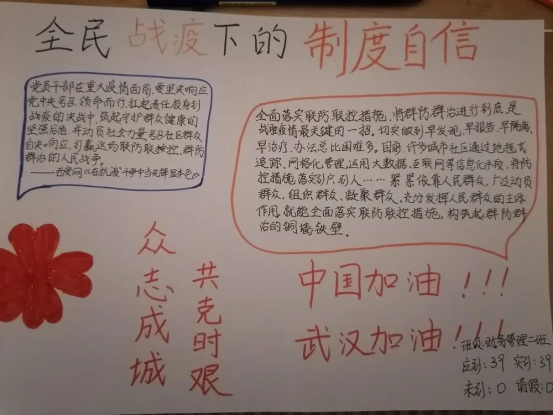 全民战疫下的制度自信
党员干部在重大疫情面前,要坚决响应
党中央号召,领命而行,扛起责任投身到
战疫的决战中,筑起守护群众健康的
坚强后盾,并动员社会力量号召社区群众
自决响应,打赢这场联防联控,群防
群治的人民战争。
全面落实联防联控措施,将群防群治进行到底是
战胜疫情最关键的一招。切实做到早发现,早报告,早隔离,
早治疗,办法总比困难多。目前,许多城市社区通过地毯式
追踪,网格化管理,运用大数据,互联网等信息化手段,将防
控措施落实到户到人……紧紧依靠人民群众,广泛动员
群众、组织群众、凝聚群众、充分发挥人民群众的主体
作用,就能全面落实联防联控措施,构筑起群防群
治的铜墙铁壁。
众志成城
共克时艰
中国加油!!!
武汉加油!!!
班级:财务管理二班
应到:39 实到:39
未到:0 请假:0